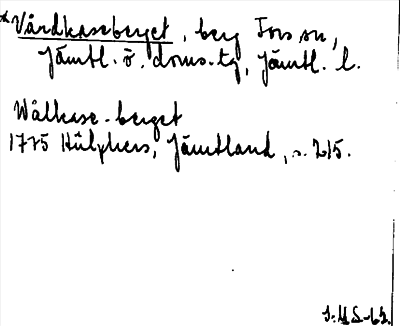 *Vårdkaseberget, berg Fors sn,
Jämtl. ö. doms.tg, Jämtl. l.
Wålkase-berget
1775 Hülphers, Jämtland, s. 215.